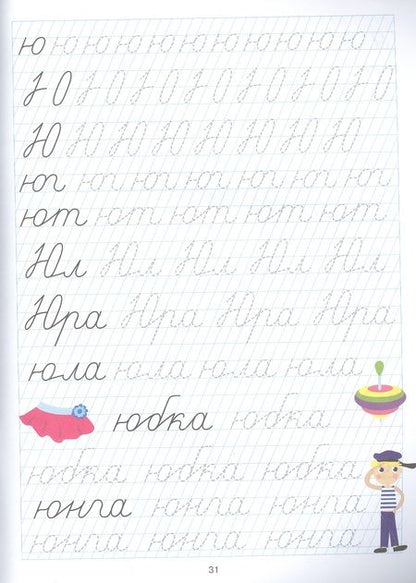 ю ю ю ю ю ю ю ю ю ю ю
Ю Ю Ю Ю Ю Ю Ю Ю
Ю Ю Ю Ю Ю Ю Ю Ю
юг юг юг юг юг юг юг
ют ют ют ют ют
Юл Юл Юл Юл Юл
Юра Юра Юра Юра
юла юла юла юла
юбка юбка
юбка юбка юбка
юнга юнга юнга
юнга юнга юнга
31